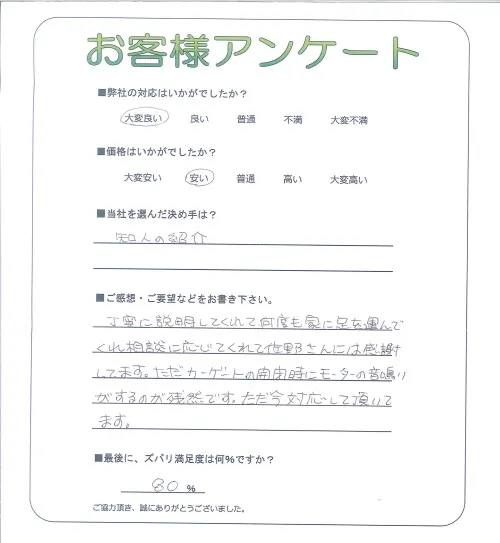 お客様アンケート
■弊社の対応はいかがでしたか？
大変良い 良い 普通 不満 大変不満
■価格はいかがでしたか？
大変安い 安い 普通 高い 大変高い
■当社を選んだ決め手は？
知人の紹介
■ご感想・ご要望などをお書き下さい。
丁寧に説明してくれて何度も家に足を運んで
くれ相談に応じてくれて佐野さんには感謝
してます。ただカーゲートの開閉時にモーターの音鳴り
がするのが残然です。ただ今対応して頂いて
ます。
■最後に、ズバリ満足度は何％ですか？
80 %
ご協力頂き、誠にありがとうございました。